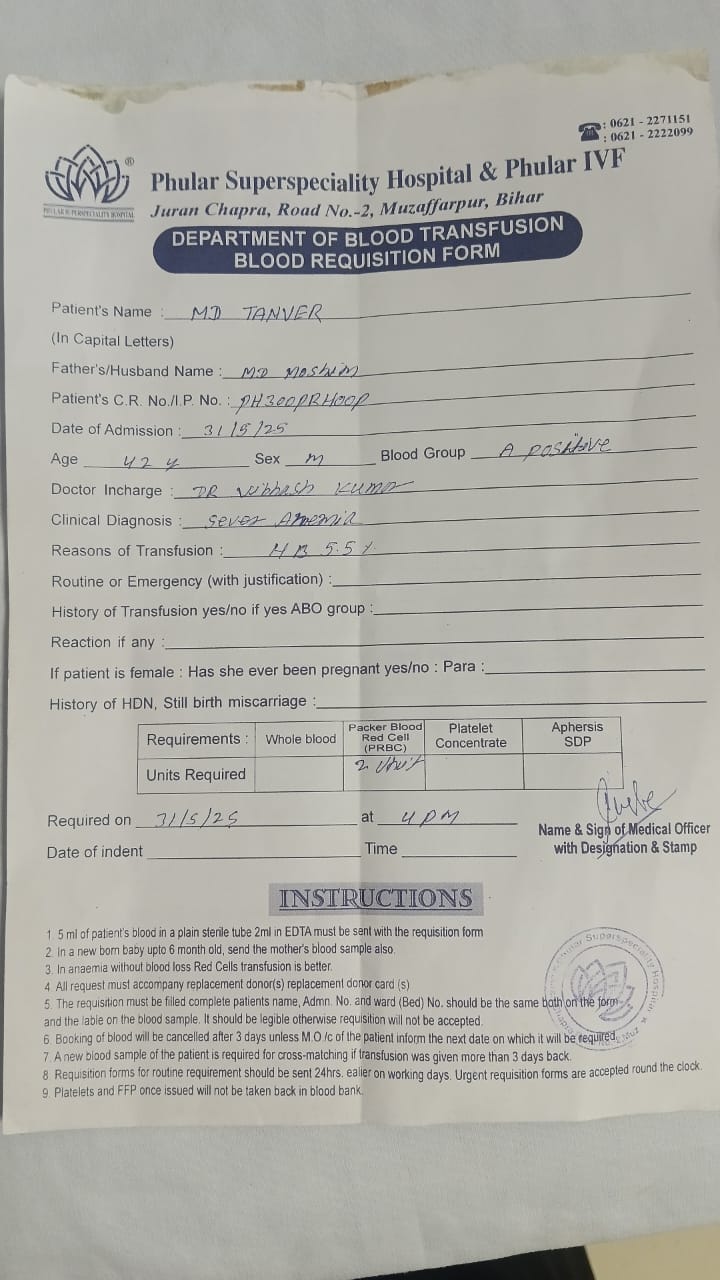 ☎ : 0621 - 2271151
: 0621 - 2222099
®
PHULAR SUPERSPECIALITY HOSPITAL
Phular Superspeciality Hospital & Phular IVF
Juran Chapra, Road No.-2, Muzaffarpur, Bihar
DEPARTMENT OF BLOOD TRANSFUSION
BLOOD REQUISITION FORM
Patient's Name : MD TANVER
(In Capital Letters)
Father's/Husband Name : MD Moshim
Patient's C.R. No./I.P. No. :
Date of Admission : 31/5/25
Age 42 y Sex M Blood Group A positive
Doctor Incharge : DR Vibhash Kumar
Clinical Diagnosis : Sever Anemia
Reasons of Transfusion : HB 5.5 %
Routine or Emergency (with justification) :
History of Transfusion yes/no if yes ABO group :
Reaction if any :
If patient is female : Has she ever been pregnant yes/no : Para :
History of HDN, Still birth miscarriage :
Requirements : Whole blood Packer Blood Red Cell (PRBC) Platelet Concentrate Aphersis SDP
Units Required 2 Unit
Required on 31/5/25 at 4 PM
Name & Sign of Medical Officer
with Designation & Stamp
Date of indent Time
INSTRUCTIONS
1. 5 ml of patient's blood in a plain sterile tube 2ml in EDTA must be sent with the requisition form
2. In a new born baby upto 6 month old, send the mother's blood sample also.
3. In anaemia without blood loss Red Cells transfusion is better.
4. All request must accompany replacement donor(s) replacement donor card (s)
5. The requisition must be filled complete patients name, Admn. No. and ward (Bed) No. should be the same both on the form
and the lable on the blood sample. It should be legible otherwise requisition will not be accepted.
6. Booking of blood will be cancelled after 3 days unless M.O /c of the patient inform the next date on which it will be required.
7. A new blood sample of the patient is required for cross-matching if transfusion was given more than 3 days back.
8. Requisition forms for routine requirement should be sent 24hrs. ealier on working days. Urgent requisition forms are accepted round the clock.
9. Platelets and FFP once issued will not be taken back in blood bank.